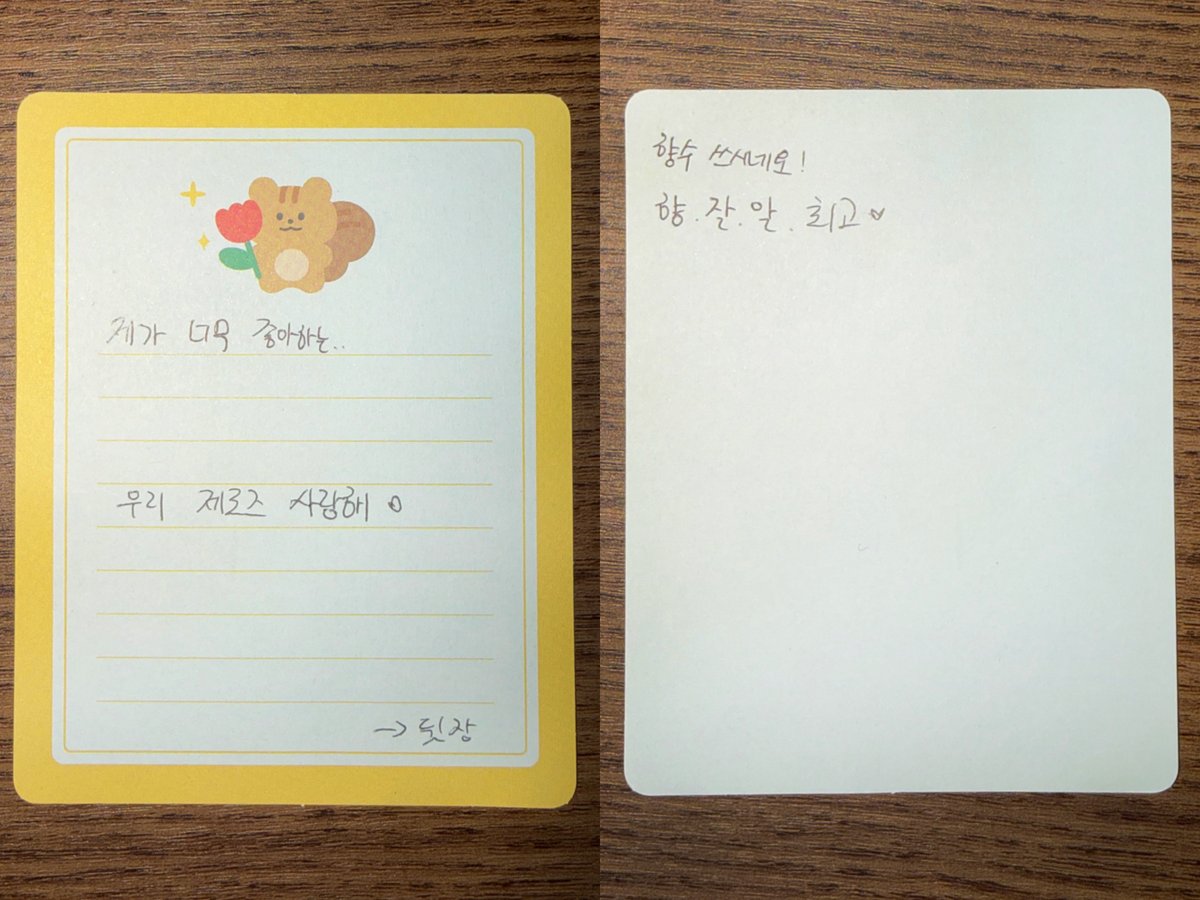 제가 너무 좋아하는..
우리 제로즈 사랑해♡
→ 뒷장
향수 쓰시네요!
향.잘.알. 최고♡